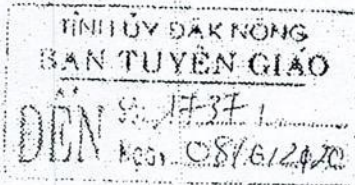 TỈNH ỦY ĐẮK NÔNG
BAN TUYÊN GIÁO
ĐẾN Số: 1737
Ngày 08/6/2020